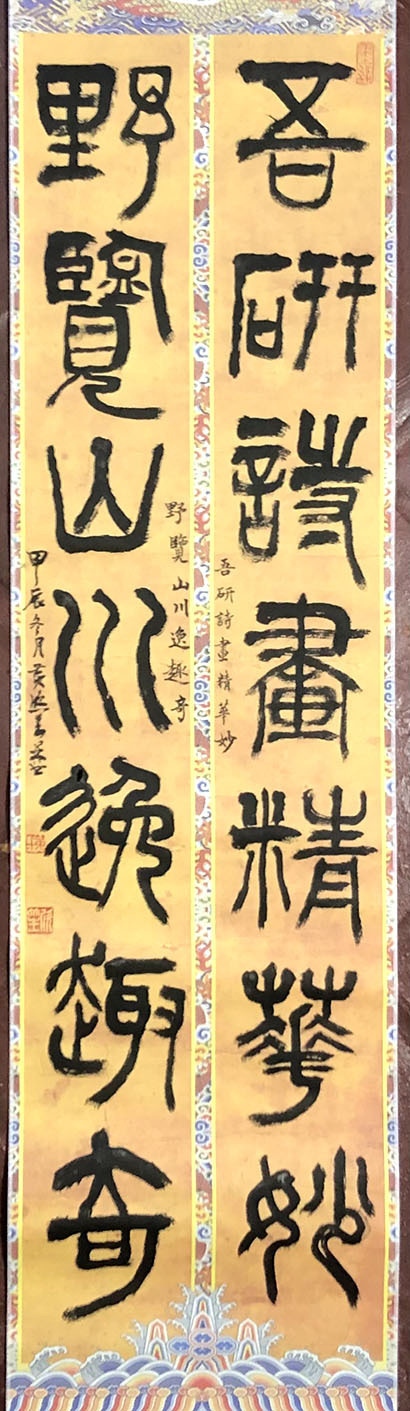 吾研詩畫精華妙
吾研詩畫精華妙
野覽山川逸趣奇
野覽山川逸趣奇
甲辰冬月黃